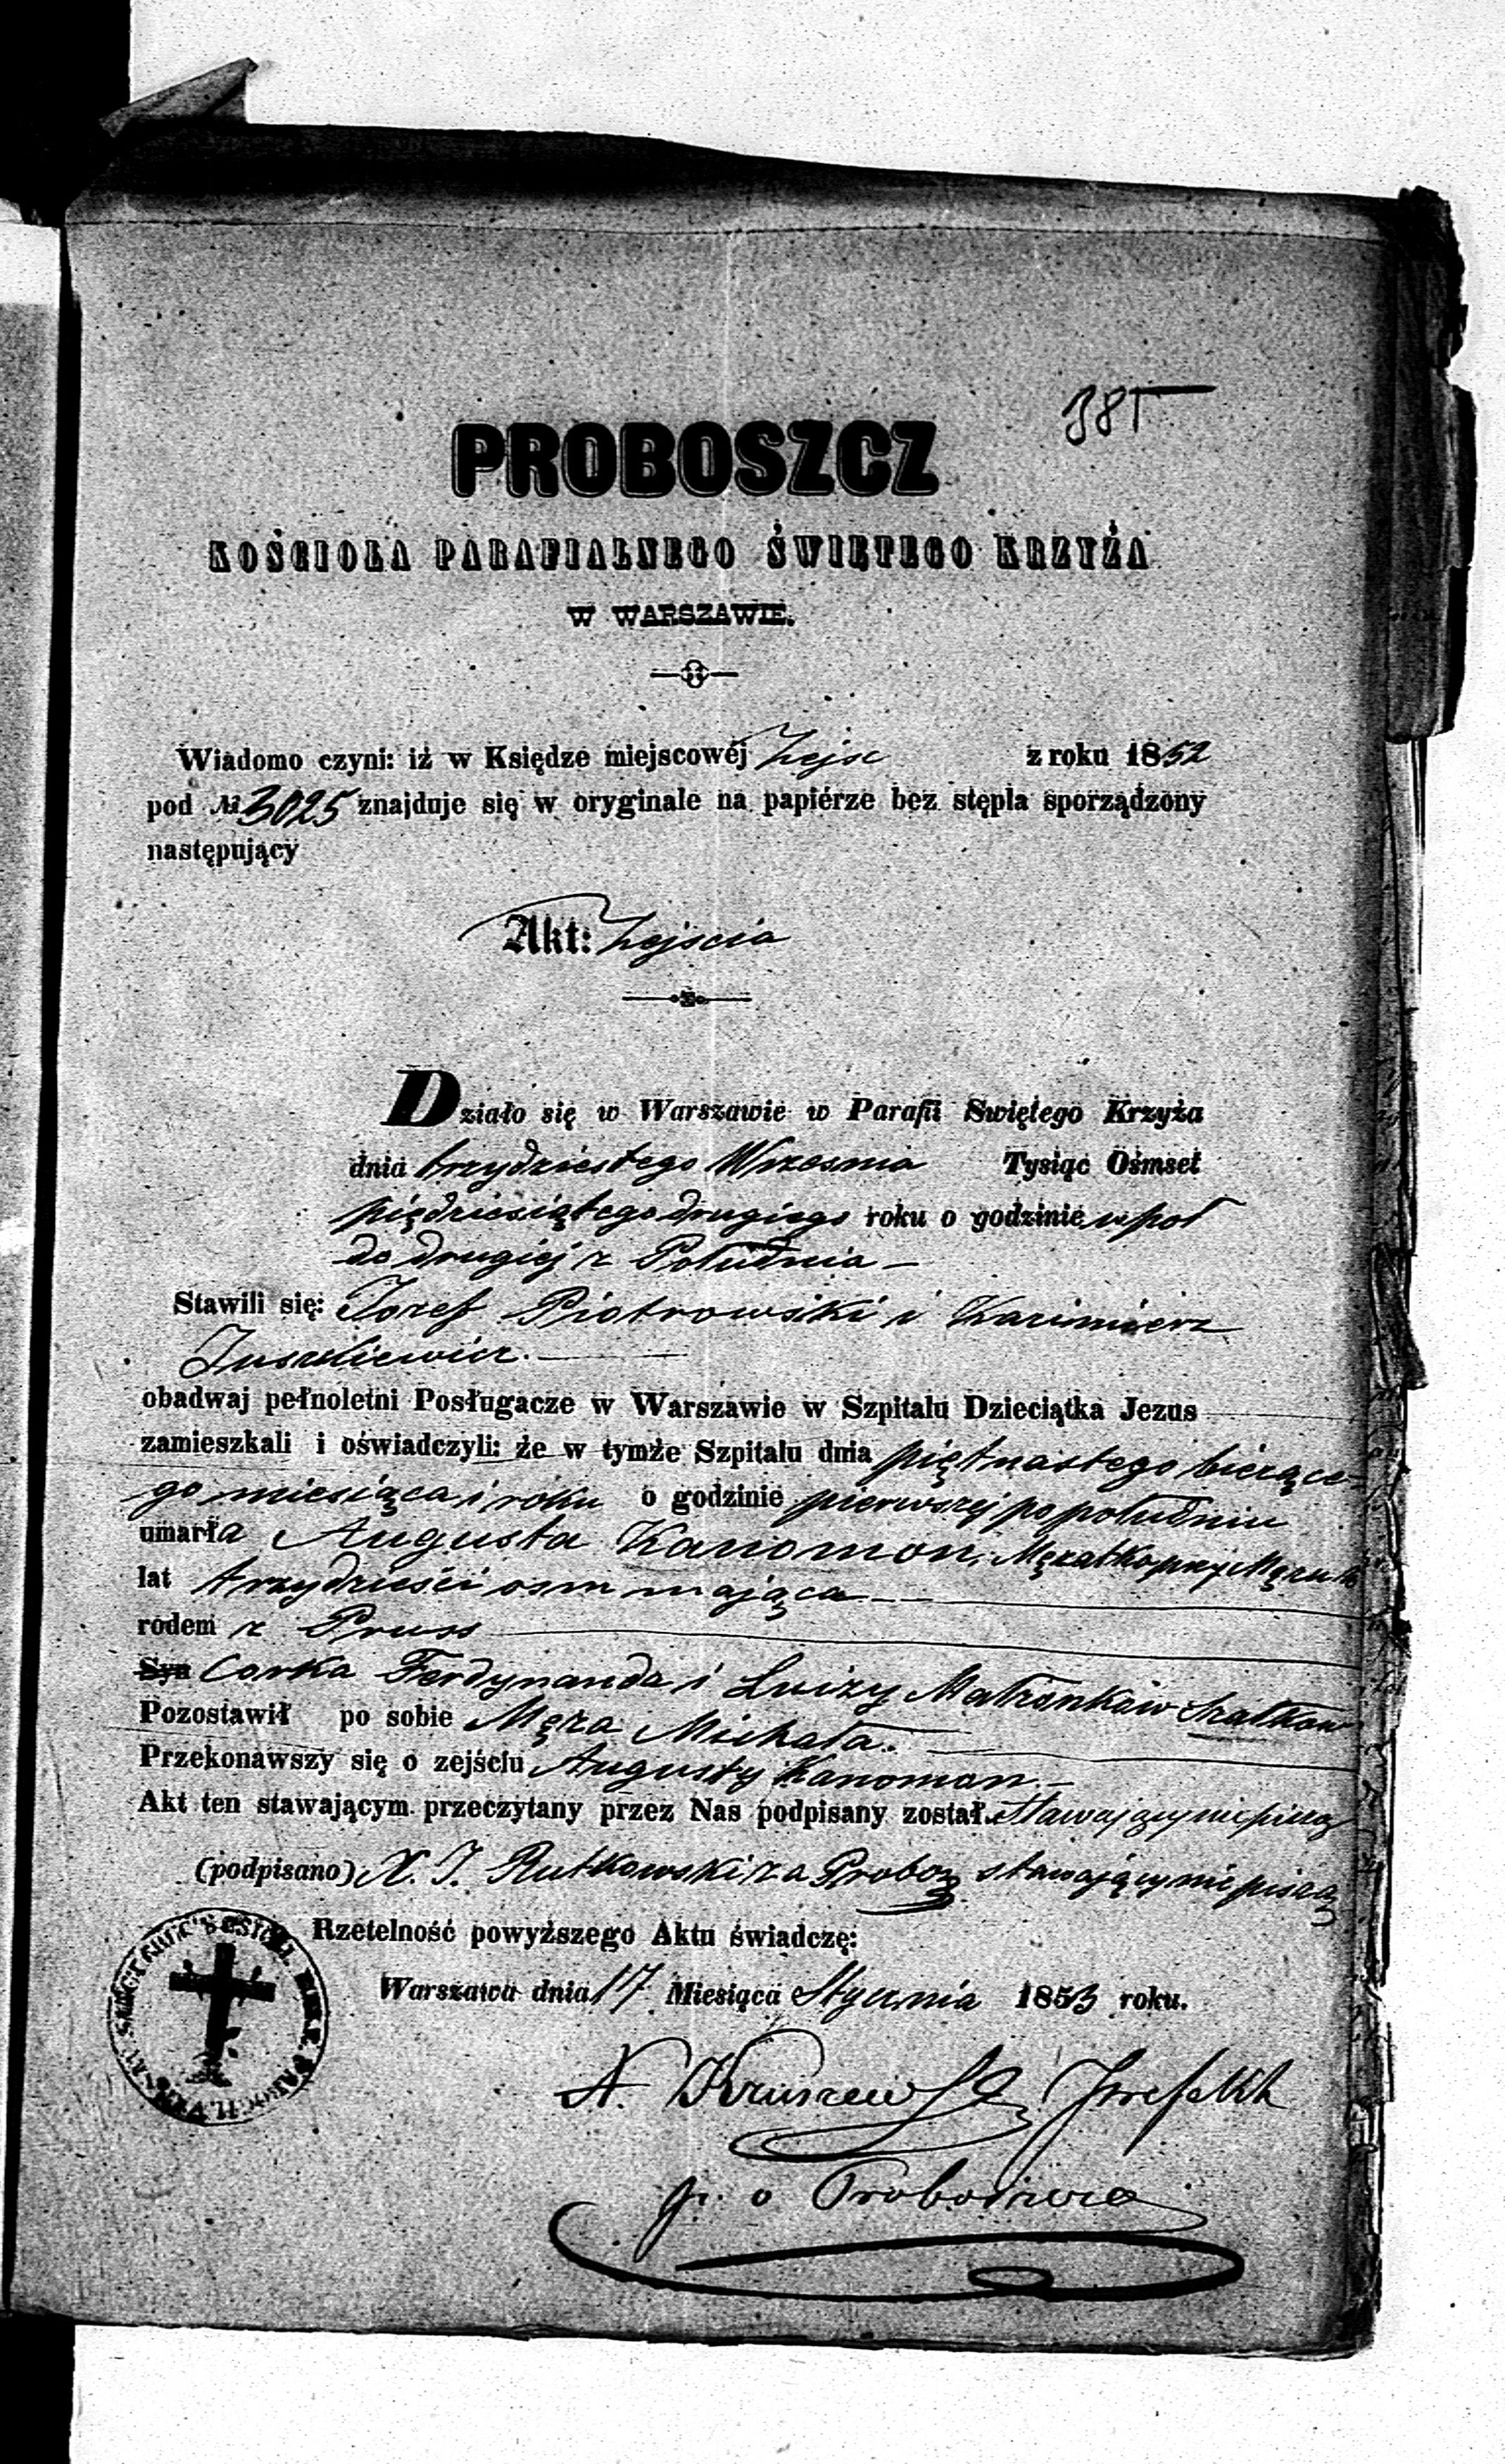 385
PROBOSZCZ
KOŚCIOŁA PARAFIALNEGO ŚWIĘTEGO KRZYŻA
W WARSZAWIE.
Wiadomo czyni: iż w Księdze miejscowéj Zejsc z roku 1852
pod № 3025 znajduje się w oryginale na papiérze bez stępla sporządzony
następujący
Akt: Zejscia
Działo się w Warszawie w Parafii Swiętego Krzyża
dnia trzydziestego Wrzesnia Tysiąc Ośmset
pięćdziesiątego drugiego roku o godzinie w poł
do drugiej z Południa –
Stawili się: Jozef Piotrowski i Kazimierz
Juszkiewicz.
obadwaj pełnoletni Posługacze w Warszawie w Szpitalu Dzieciątka Jezus
zamieszkali i oświadczyli: że w tymże Szpitalu dnia piętnastego bieżące-
go miesiąca i roku o godzinie pierwszej po południu
umarła Augusta Kanoman, Mężatka przy Mężu
lat trzydzieści osm mająca
rodem z Pruss
Syn Corka Ferdynanda i Luizy Małżonków
Pozostawił po sobie Męża Michała.
Przekonawszy się o zejściu Augusty Kanoman. –
Akt ten stawającym przeczytany przez Nas podpisany został. Stawający nie piszą
(podpisano) X. J. Rutkowski za Probosz stawający nie piszą
Rzetelność powyższego Aktu świadczę:
Warszawa dnia 17 Miesiąca Stycznia 1853 roku.
p. o Proboszcza